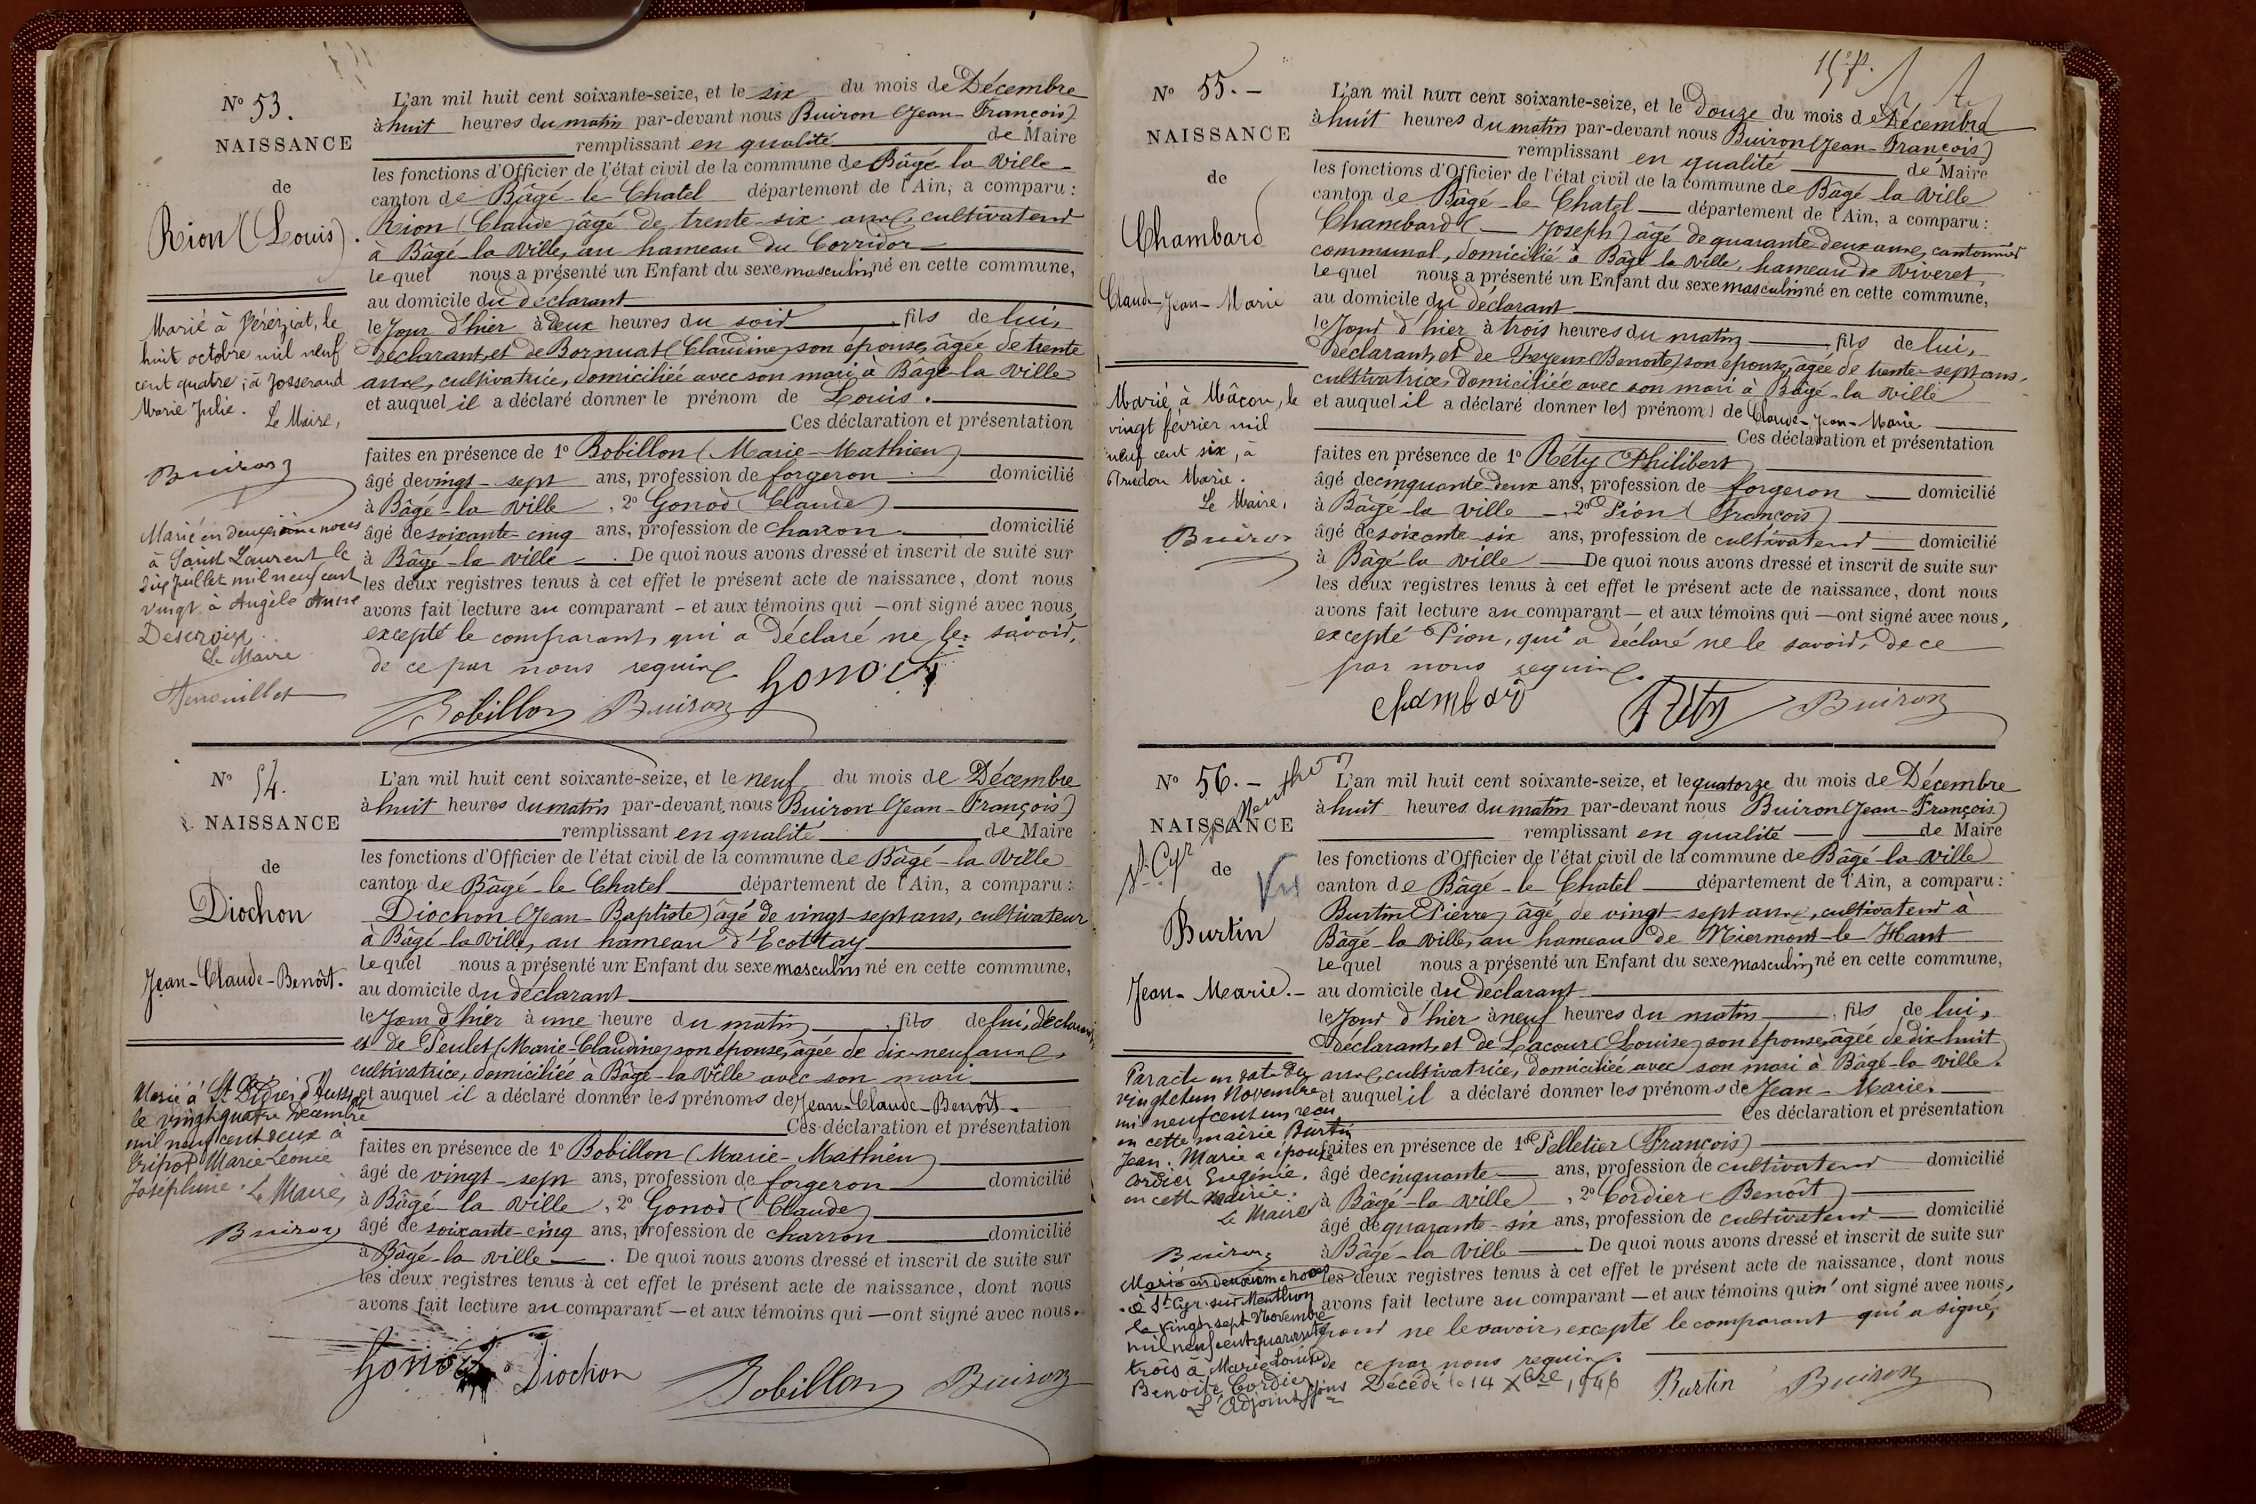 N° 53.
NAISSANCE
de
Rion (Louis).
Marié à Vériziat, le
huit octobre mil neuf
cent quatre, à Josserand
Marie Julie.
Le Maire,
Buiron
Marié en deuxième noces
à Saint Laurent le
dix Juillet mil neuf cent
vingt à Angèle Anne
Descroix
Le Maire
L'an mil huit cent soixante-seize, et le six du mois de Décembre
à huit heures du matin par-devant nous Buiron (Jean-François)
remplissant en qualité de Maire
les fonctions d'Officier de l'état civil de la commune de Bâgé-la-Ville
canton de Bâgé-le-Chatel département de l'Ain, a comparu :
Rion (Claude) âgé de trente-six ans, cultivateur
à Bâgé-la-Ville, au hameau du Corridor
lequel nous a présenté un Enfant du sexe masculin né en cette commune,
au domicile du déclarant
le jour d'hier à deux heures du soir, fils de lui,
déclarant, et de Bornuat (Claudine) son épouse, âgée de trente
ans, cultivatrice, domiciliée avec son mari à Bâgé-la-Ville
et auquel il a déclaré donner le prénom de Louis.
Ces déclaration et présentation
faites en présence de 1° Bobillon (Marie-Mathieu)
âgé de vingt-sept ans, profession de forgeron domicilié
à Bâgé-la-Ville, 2° Gonod (Claude)
âgé de soixante-cinq ans, profession de charron domicilié
à Bâgé-la-Ville. De quoi nous avons dressé et inscrit de suite sur
les deux registres tenus à cet effet le présent acte de naissance, dont nous
avons fait lecture au comparant - et aux témoins qui - ont signé avec nous,
excepté le comparant, qui a déclaré ne le savoir,
de ce par nous requis.
Gonod
Bobillon Buiron
N° 54.
NAISSANCE
de
Diochon
Jean-Claude-Benoît.
Marié à St Didier d'Aussiat
le vingt quatre Décembre
mil neuf cent deux à
Tripoz Marie Léonie
Joséphine. Le Maire,
Buiron
L'an mil huit cent soixante-seize, et le neuf du mois de Décembre
à huit heures du matin par-devant nous Buiron (Jean-François)
remplissant en qualité de Maire
les fonctions d'Officier de l'état civil de la commune de Bâgé-la-Ville
canton de Bâgé-le-Chatel département de l'Ain, a comparu :
Diochon (Jean-Baptiste) âgé de vingt-sept ans, cultivateur
à Bâgé-la-Ville, au hameau d'Ecottay
lequel nous a présenté un Enfant du sexe masculin né en cette commune,
au domicile du déclarant
le jour d'hier à une heure du matin, fils de lui, déclarant
et de Peulet (Marie-Claudine) son épouse, âgée de dix-neuf ans,
cultivatrice, domiciliée à Bâgé-la-Ville avec son mari
et auquel il a déclaré donner les prénoms de Jean-Claude-Benoît.
Ces déclaration et présentation
faites en présence de 1° Bobillon (Marie-Mathieu)
âgé de vingt-sept ans, profession de forgeron domicilié
à Bâgé-la-Ville, 2° Gonod (Claude)
âgé de soixante-cinq ans, profession de charron domicilié
à Bâgé-la-Ville. De quoi nous avons dressé et inscrit de suite sur
les deux registres tenus à cet effet le présent acte de naissance, dont nous
avons fait lecture au comparant - et aux témoins qui - ont signé avec nous.
Gonod Diochon Bobillon Buiron
N° 55.
NAISSANCE
de
Chambard
Claude-Jean-Marie
Marié à Mâcon, le
vingt février mil
neuf cent six, à
Trudon Marie.
Le Maire,
Buiron
L'an mil huit cent soixante-seize, et le douze du mois de Décembre
à huit heures du matin par-devant nous Buiron (Jean-François)
remplissant en qualité de Maire
les fonctions d'Officier de l'état civil de la commune de Bâgé-la-Ville
canton de Bâgé-le-Chatel département de l'Ain, a comparu :
Chambard (Joseph) âgé de quarante-deux ans, cantonnier
communal, domicilié à Bâgé-la-Ville, hameau de Viveret,
lequel nous a présenté un Enfant du sexe masculin né en cette commune,
au domicile du déclarant
le jour d'hier à trois heures du matin, fils de lui,
déclarant, et de (Benoite) son épouse, âgée de trente-sept ans,
cultivatrice, domiciliée avec son mari à Bâgé-la-Ville
et auquel il a déclaré donner les prénoms de Claude-Jean-Marie
Ces déclaration et présentation
faites en présence de 1° Réty (Philibert)
âgé de cinquante-deux ans, profession de forgeron domicilié
à Bâgé-la-Ville, 2° Pion (François)
âgé de soixante-six ans, profession de cultivateur domicilié
à Bâgé-la-Ville De quoi nous avons dressé et inscrit de suite sur
les deux registres tenus à cet effet le présent acte de naissance, dont nous
avons fait lecture au comparant - et aux témoins qui - ont signé avec nous,
excepté Pion, qui a déclaré ne le savoir, de ce
par nous requis.
Chambard Réty Buiron
N° 56.
NAISSANCE
St Cyr s/ Menthon
de
Vu
Burtin
Jean-Marie.
Par acte en date du
vingt et un Novembre
mil neuf cent un reçu
en cette mairie Burtin
Jean-Marie a épousé
Cordier Eugénie.
en cette mairie.
Le Maire
Buiron
Marié en deuxième noces
à St Cyr-sur-Menthon
le vingt-sept Novembre
mil neuf cent quarante
trois à Marie Louise
Benoite Cordier
L'Adjoint
L'an mil huit cent soixante-seize, et le quatorze du mois de Décembre
à huit heures du matin par-devant nous Buiron (Jean-François)
remplissant en qualité de Maire
les fonctions d'Officier de l'état civil de la commune de Bâgé-la-Ville
canton de Bâgé-le-Chatel département de l'Ain, a comparu :
Burtin (Pierre) âgé de vingt-sept ans, cultivateur à
Bâgé-la-Ville, au hameau de Niermont-le-Haut
lequel nous a présenté un Enfant du sexe masculin né en cette commune,
au domicile du déclarant
le jour d'hier à neuf heures du matin, fils de lui,
déclarant, et de Lacour (Louise) son épouse, âgée de dix-huit
ans, cultivatrice, domiciliée avec son mari à Bâgé-la-Ville.
et auquel il a déclaré donner les prénoms de Jean-Marie.
Ces déclaration et présentation
faites en présence de 1° Pelletier (François)
âgé de cinquante ans, profession de cultivateur domicilié
à Bâgé-la-Ville, 2° Cordier (Benoît)
âgé de quarante-six ans, profession de cultivateur domicilié
à Bâgé-la-Ville. De quoi nous avons dressé et inscrit de suite sur
les deux registres tenus à cet effet le présent acte de naissance, dont nous
avons fait lecture au comparant - et aux témoins qui n'ont signé avec nous,
pour ne le savoir, excepté le comparant qui a signé,
de ce par nous requis.
Décédé le 14 Xbre 1946 Burtin Buiron